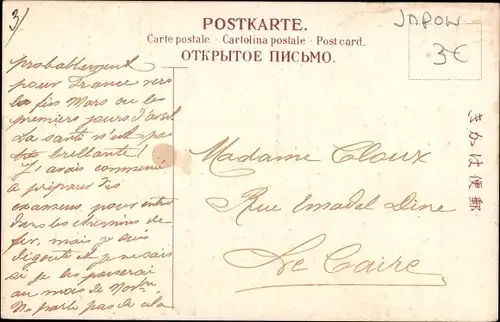 3)
POSTKARTE.
JAPON
3€
Carte postale - Cartolina postale - Post card.
ОТКРЫТОЕ ПИСЬМО.
きかは便郵
probablement
pour France vers
la fin Mars ou les
premiers jours d'avril
La santé n'est pas
très brillante!
J'avais commencé
à préparer des
examens pour entrer
dans les chemins de
fer, mais je suis
dégouté et je ne sais
si je les passerai
au mois de
Ne parle pas de cela
Madame Cloux
Rue Emadel Dine
Le Caire